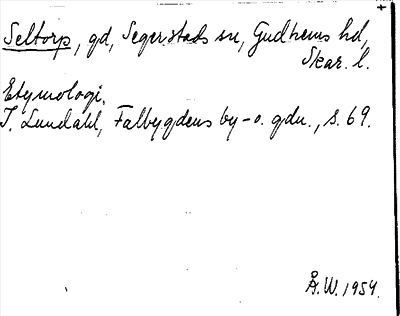 Seltorp, gd, Segerstads sn, Gudhems hd,
Skar. l.
Etymologi.
I. Lundahl, Falbygdens by- o. gdn., s. 69.
Å.W. 1954.